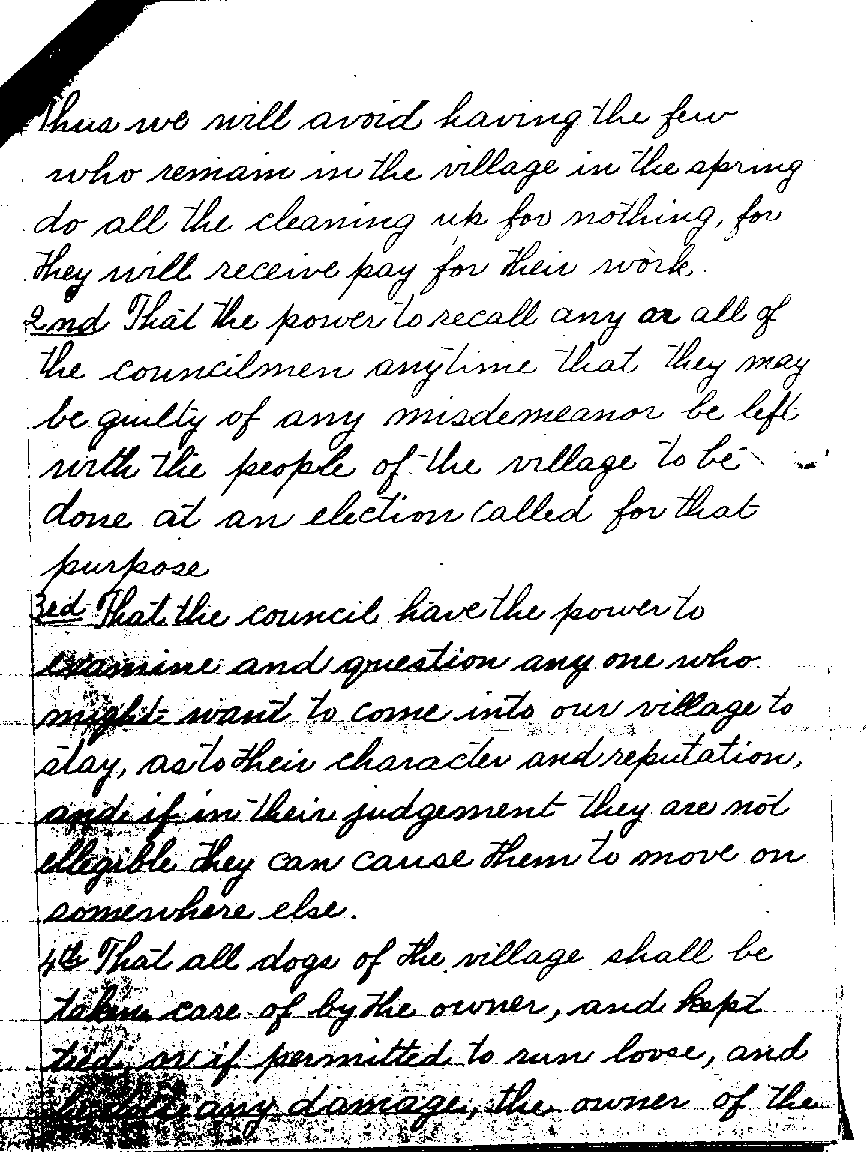 Thus we will avoid having the few
who remain in the village in the spring
do all the cleaning up for nothing, for
they will receive pay for their work.
2nd That the power to recall any or all of
the councilmen anytime that they may
be guilty of any misdemeanor be left
with the people of the village to be
done at an election called for that
purpose
3ed That the council have the power to
examine and question any one who
might want to come into our village to
stay, as to their character and reputation,
and if in their judgement they are not
ellegible they can cause them to move on
somewhere else.
4th That all dogs of the village shall be
taken care of by the owner, and kept
tied, or if permitted to run loose, and
any damage, the owner of the